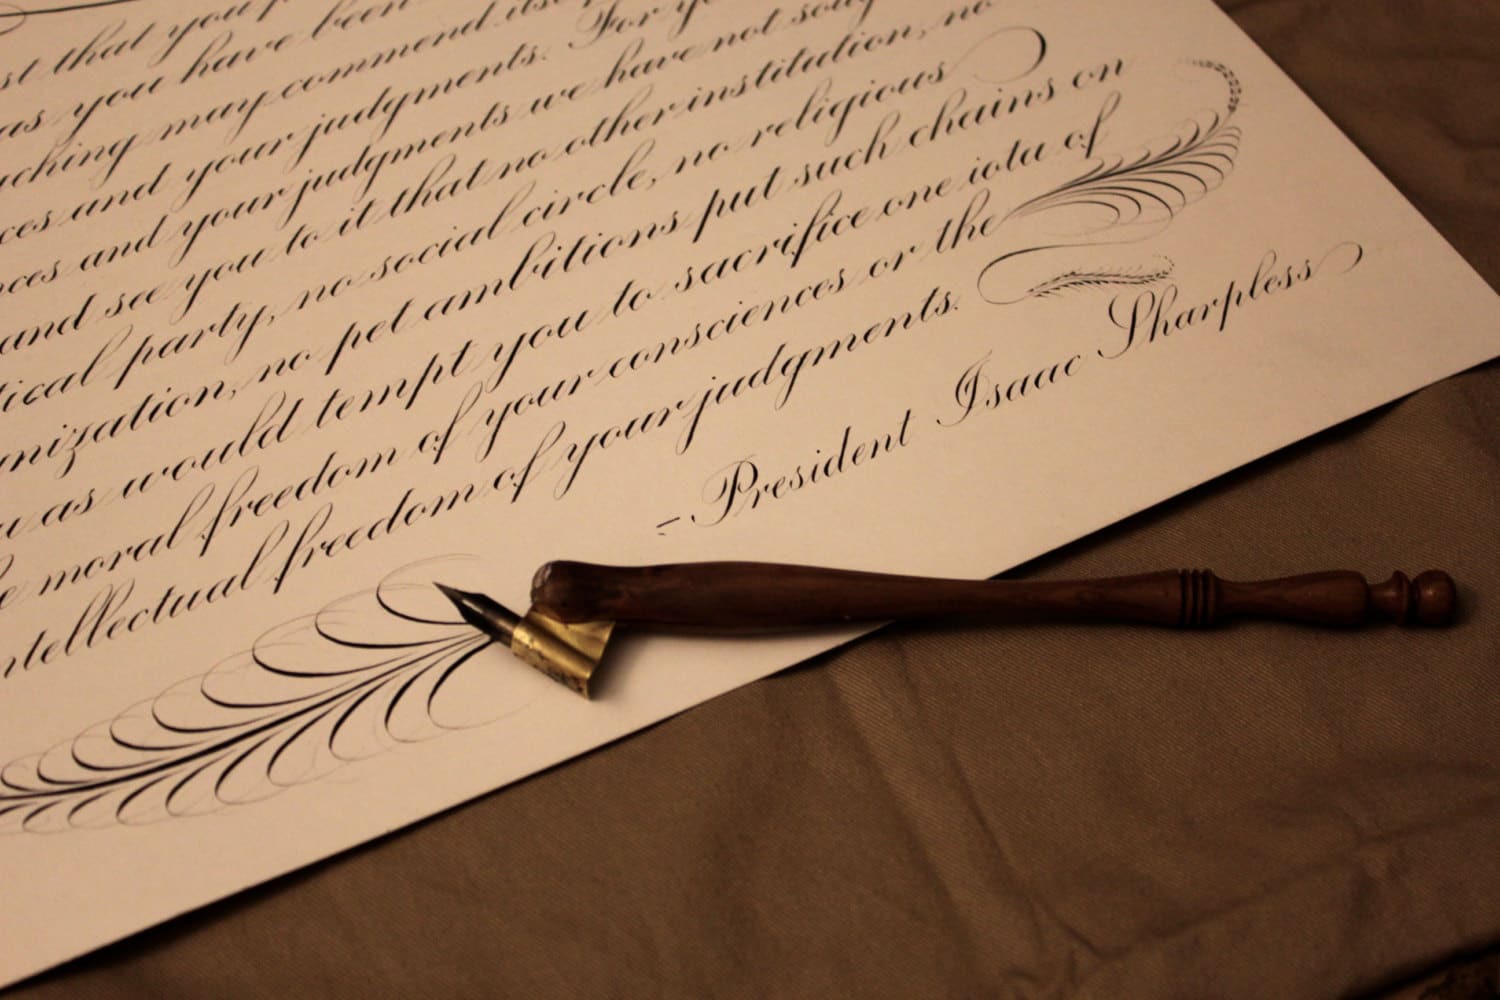 that you
as you have been
may commend its
and your judgments. For
and your judgments we have not
and see you to it that no other institution, no
party, no social circle, no religious
no pet ambitions put such chains on
as would tempt you to sacrifice one iota of
moral freedom of your consciences or the
intellectual freedom of your judgments.
-President Isaac Sharpless